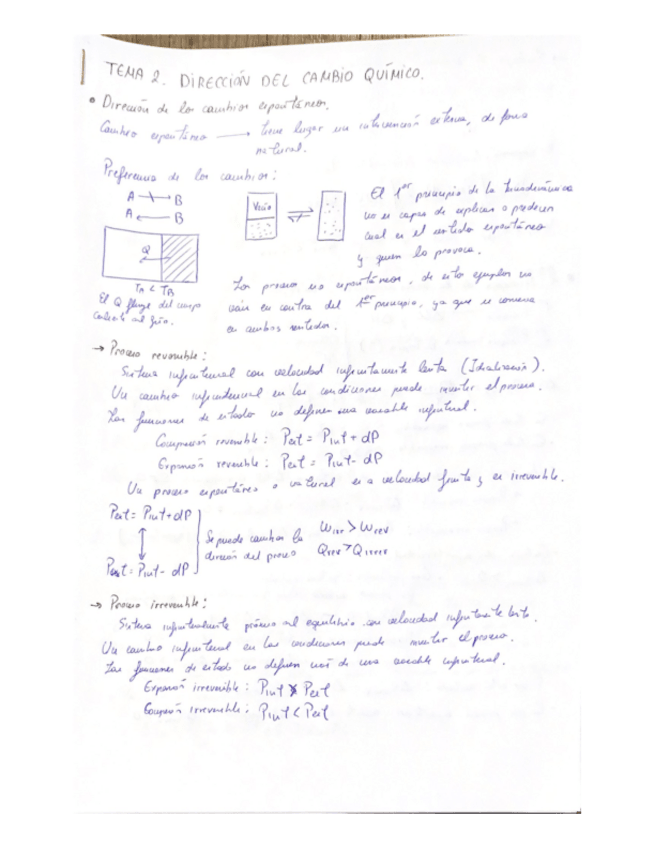 TEMA 2. DIRECCIÓN DEL CAMBIO QUÍMICO.
• Dirección de los cambios espontáneos.
Cambio espontáneo → tiene lugar sin intervención externa, de forma
natural.
Preferencia de los cambios:
A ↛ B
A ← B
Vacío
Q
TA < TB
El Q fluye del cuerpo
caliente al frío.
El 1er principio de la termodinámica
no es capaz de explicar o predecir
cual es el sentido espontáneo
y quien lo provoca.
Los procesos no espontáneos, de estos ejemplos no
van en contra del 1er principio, ya que se conserva
en ambos sentidos.
→ Proceso reversible:
Sistema infinitesimal con velocidad infinitamente lenta (Idealización).
Un cambio infinitesimal en las condiciones puede invertir el proceso.
Las funciones de estado no definen una variable infinitesimal.
Compresión reversible: Pext = Pint + dP
Expansión reversible: Pext = Pint - dP
Un proceso espontáneo o natural es a velocidad finita y es irreversible.
Pext = Pint + dP
Se puede cambiar la
dirección del proceso
Wirr > Wrev
Qrev > Qirrev
Pext = Pint - dP
→ Proceso irreversible:
Sistema infinitesimalmente próximo al equilibrio con velocidad infinitamente lenta.
Un cambio infinitesimal en las condiciones puede invertir el proceso.
Las funciones de estado no definen más de una variable infinitesimal.
Expansión irreversible: Pint > Pext
Compresión irreversible: Pint < Pext